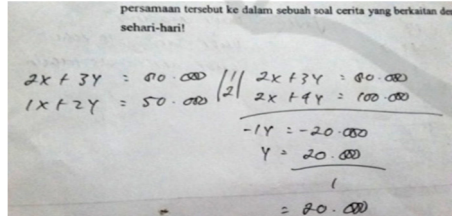 persamaan tersebut ke dalam sebuah soal cerita yang berkaitan de
sehari-hari!
2x + 3y = 80.000 |1| 2x + 3y = 80.000
1x + 2y = 50.000 |2| 2x + 4y = 100.000
-1y = -20.000
y = 20.000
1
= 20.000